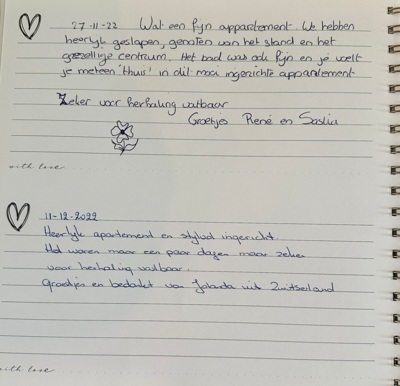 27-11-22 Wat een fijn appartement. We hebben
heerlijk geslapen, genoten van het eiland en het
gezellige centrum. Het bad was ook fijn en je voelt
je meteen 'thuis' in dit mooi ingerichte appartement
Zeker voor herhaling vatbaar
Groetjes René en Saskia
with love
11-12-2022
Heerlijk apartement en stijlvol ingericht.
Het waren maar een paar dagen maar zeker
voor herhaling vatbaar.
Groetjes en bedankt van Jolanda uit Zwitserland
with love